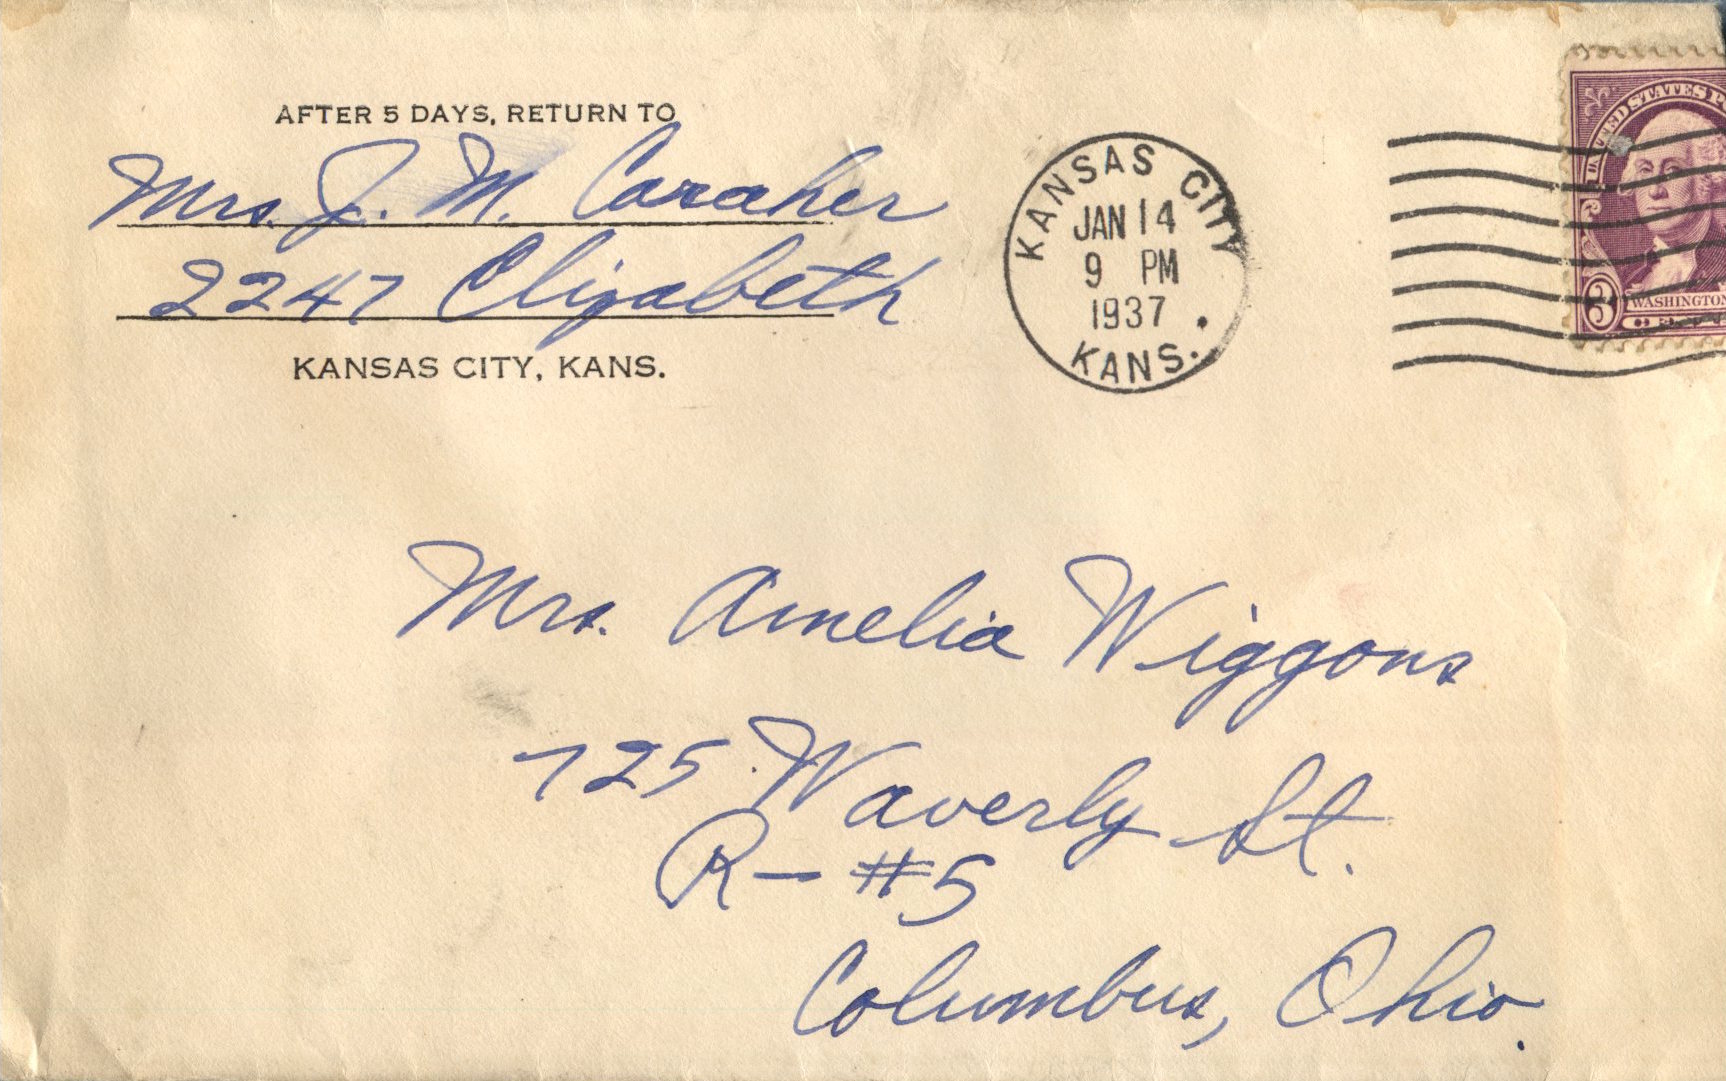 AFTER 5 DAYS, RETURN TO
Mrs. J. M. Caraher
2247 Elizabeth
KANSAS CITY, KANS.
KANSAS CITY
JAN 14
9 PM
1937
KANS.
UNITED STATES P
3
WASHINGTON
Mrs. Amelia Wiggons
725 Waverly St.
R- #5
Columbus, Ohio.